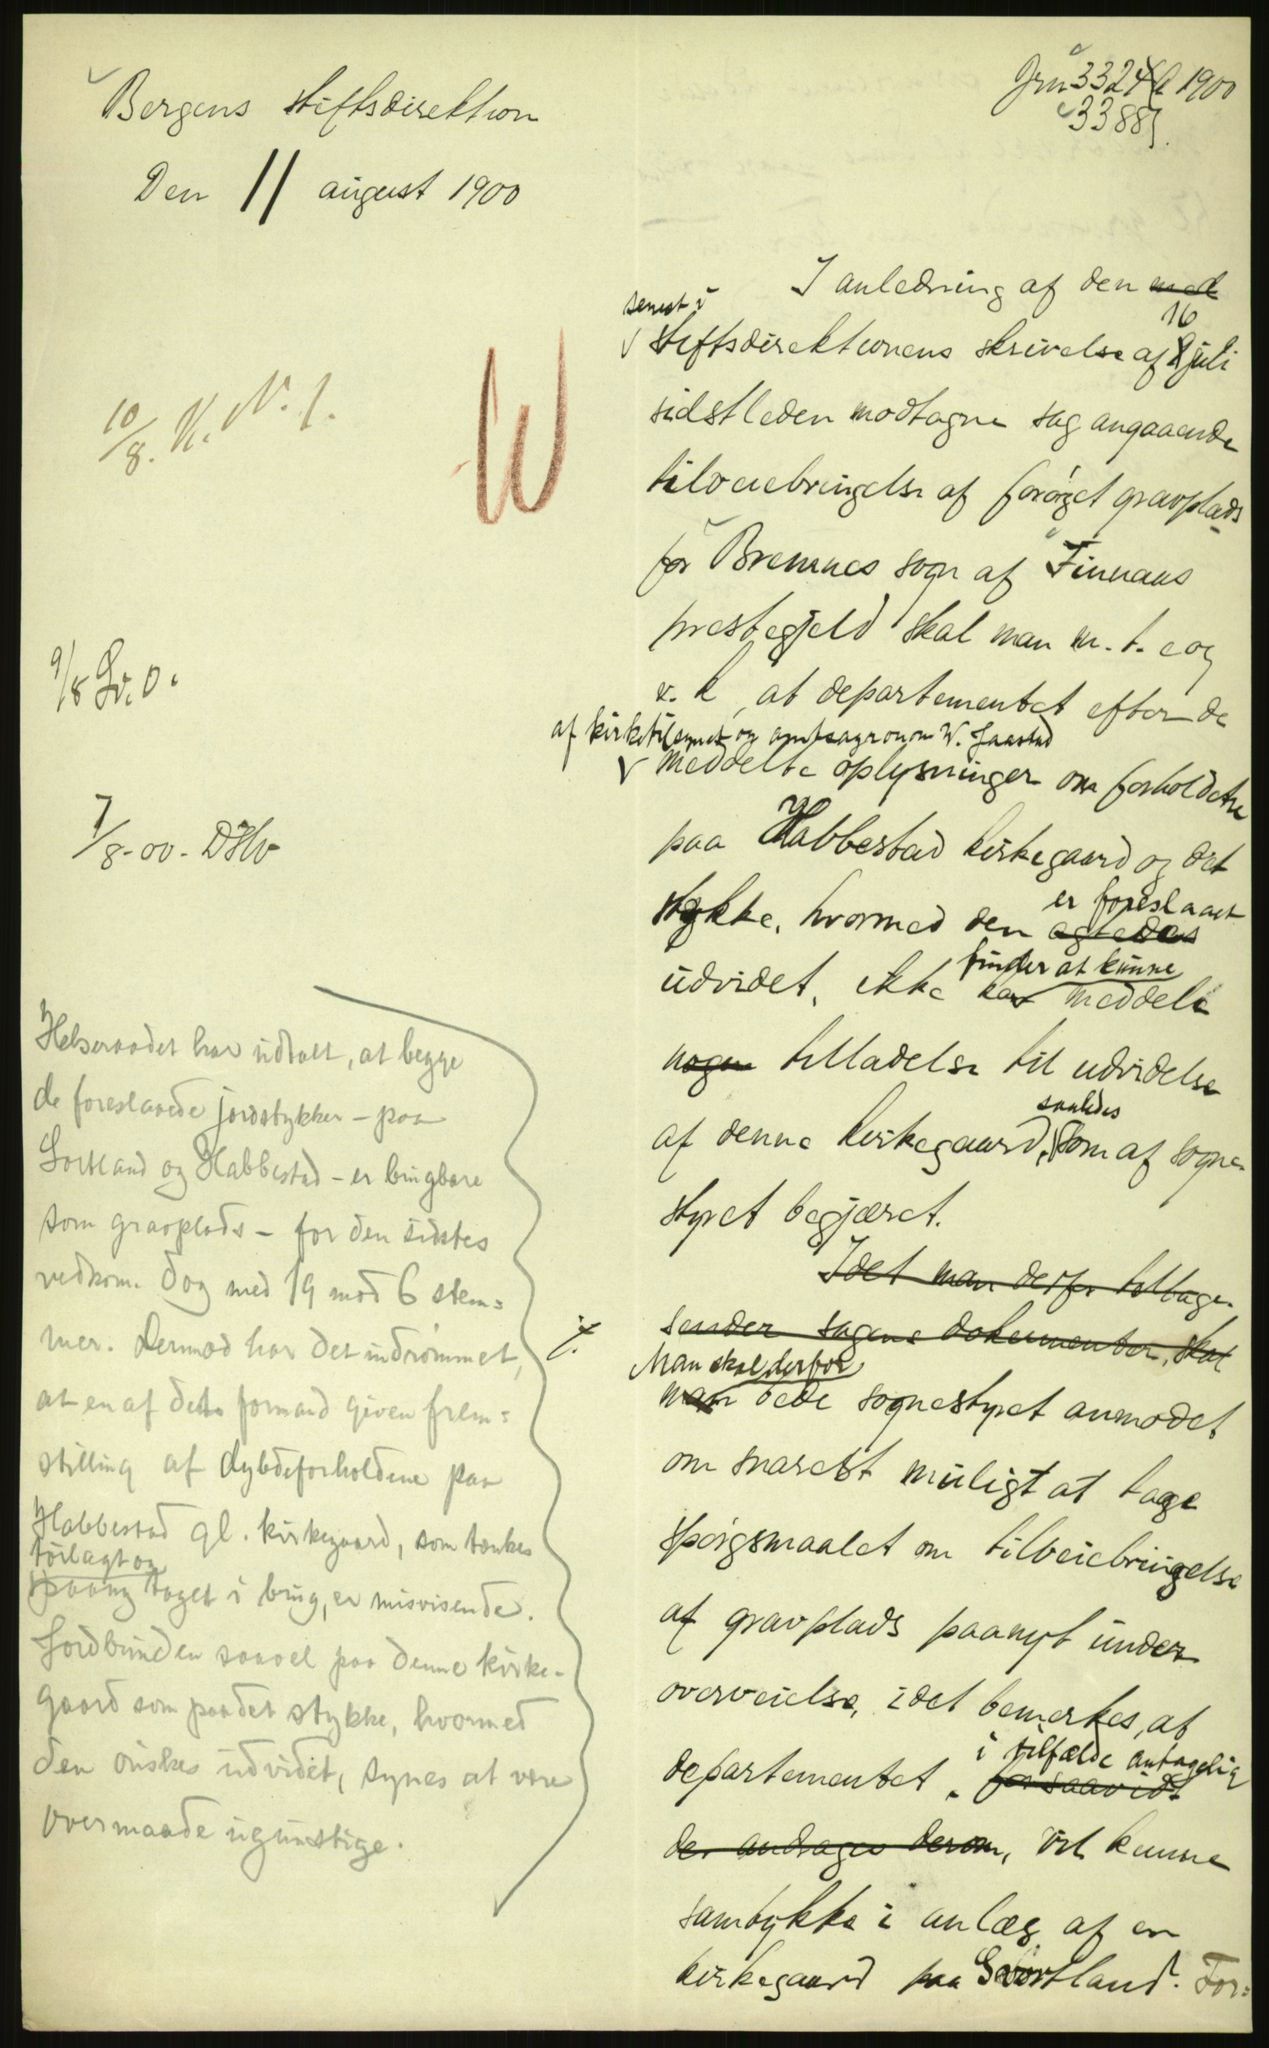 Bergens stiftsdirektion
Den 11 august 1900
Jrn 3324 1900
3388
10/8. K. N. f.
9/8 Sv. O.
7/8-00. DHv
I anledning af den med
senest i
Stiftsdirektionens skrivelse af 8 juli
16
sidstleden modtagne sag angaaende
tilveiebringelse af forøget gravplads
for Bremnes sogn af Finnaas
prestegjeld skal man m. t. og
v. k, at departementet efter de
af kirketilsynet og amtsagronom W. Jaastad
meddelte oplysninger om forholdene
paa Habbestad kirkegaard og det
stykke, hvormed den agtedes
er foreslaaet
udvidet, ikke kan meddele
finder at kunne
nogen tilladelse til udvidelse
af denne kirkegaard, som af sogne-
saaledes
styret begjæret.
Idet man derfor tilbage-
sender sagens dokumenter, skal
Man skal derfor
man bede sognestyret anmodet
om snarest muligt at tage
spørgsmaalet om tilveiebringelse
af gravplads paanyt under
overveielse, idet bemerkes, at
departementet, forsaavidt
i tilfælde antagelig
der andrages derom, vil kunne
samtykke i anlæg af en
kirkegaard paa Svortland. For=
Helseraadet har udtalt, at begge
de foreslaaede jordstykker - paa
Sortland og Habbestad - er brugbare
som gravplads - for den sidstes
vedkom. dog med 19 mod 6 stem=
mer. Dermod har det indrømmet,
at en af dets formand given frem=
stilling af dybdeforholdene paa
Habbestad gl. kirkegaard, som tænkes
tørlagt og
paany taget i brug, er misvisende.
Jordbunden saavel paa denne kirke-
gaard som paa det stykke, hvormed
den ønskes udvidet, synes at være
overmaade ugunstige.